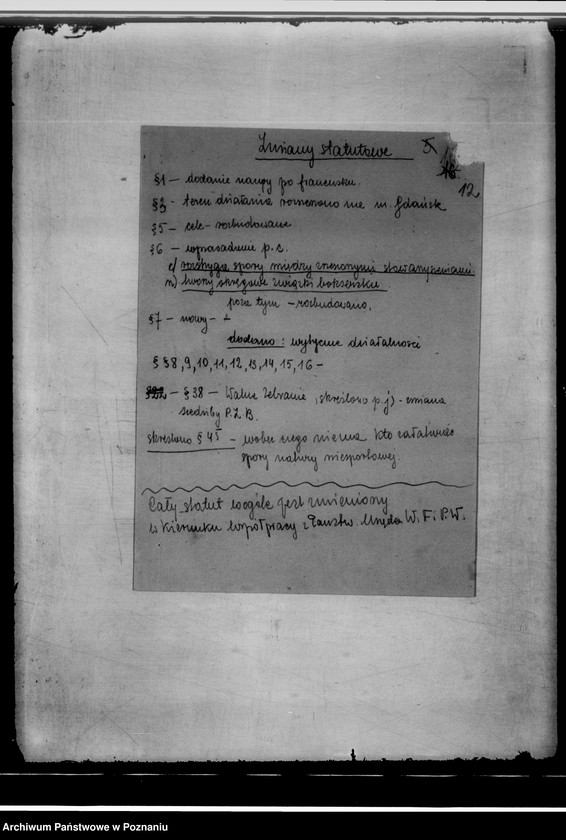 Zmiany statutowe
12
§1 – dodanie nazwy po francusku.
§3 - teren działania rozszerzono na m. Gdańsk
§5 – cele - rozbudowane
§6 – wprowadzenie p.
e) rozstrzyga spory między zrzeszonymi stowarzyszeniami
n) tworzy okręgowe związki bokserskie
poza tym – rozbudowano.
§7 – nowy –
dodano: wytyczne działalności
§ §8, 9, 10, 11, 12, 13, 14, 15, 16 –
– §38 – Walne Zebranie, (skreślono p. j) – zmiana
siedziby P.Z.B.
skreślono § 45 – wobec czego nie ma kto załatwiać
spory natury niesportowej.
Cały statut wogóle jest zmieniony
w kierunku współpracy z Państw. Urzędem W. F. i P. W.
Archiwum Państwowe w Poznaniu